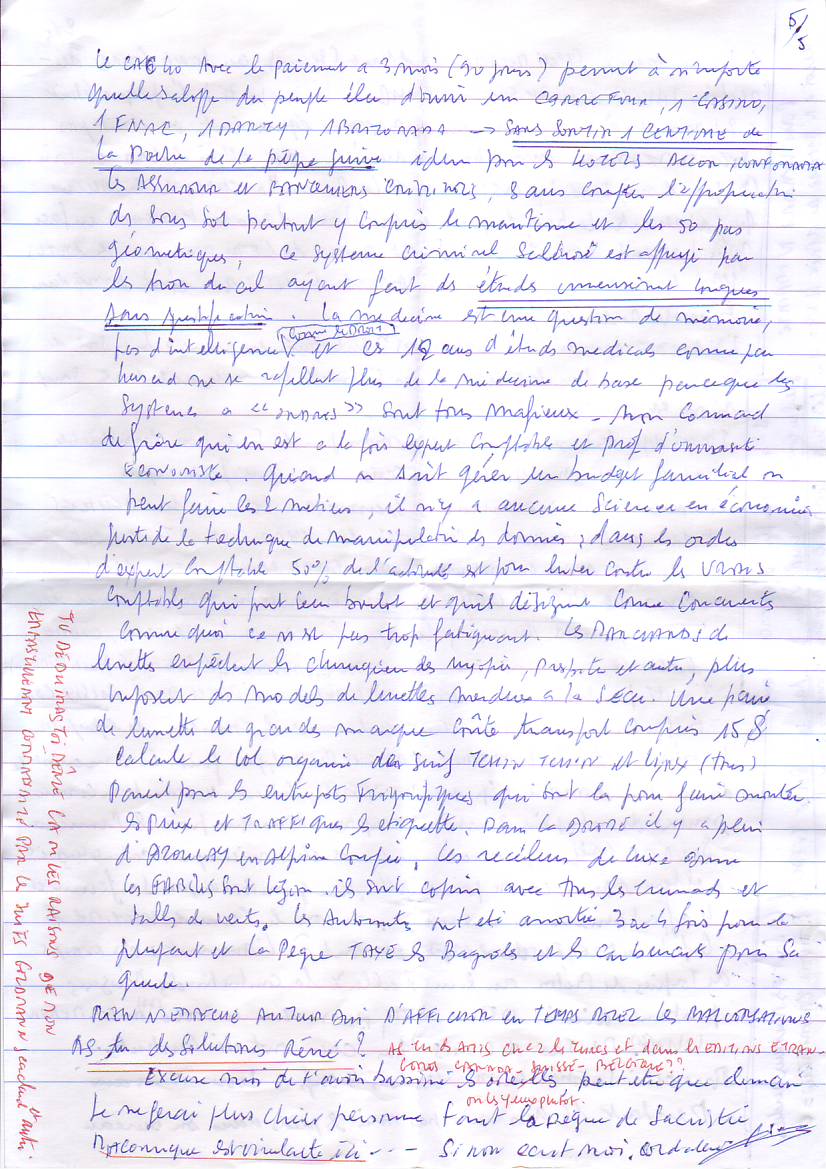 5/5
Le CAC 40 Avec le paiement a 3 mois (90 jours) permet à n'importe
quelle salope du peuple élu d'ouvrir un CARREFOUR, 1 CASINO,
1 FNAC, 1 DARTY, 1 → SANS SORTIR 1 CENTIME de
la Poche de la pègre juive idem pour les HOTELS ACCOR, CONFORAMA
les ASSUREUR et BANQUIERS CRIMINELS, sans compter l'appropriation
du sous sol partout y compris le maritime et les 50 pas
géometriques, Ce Systeme criminel est appuyé par
les trou du cul ayant fait des études
sans justification. La medecine est une question de mémoire,
pas d'intelligence (comme le DROIT) et ces 12 ans d'études medicales comme par
hasard ne se rappellent plus de la médecine de base parceque les
Systemes a << ORDRES >> sont tous mafieux - Mon Connard
de frère qui en est a la fois expert Comptable et Prof d'université
ECONOMISTE. Quand on sait gérer un budget familial on
peut faire les 2 metiers, il n'y a aucune Science en économie
juste de la technique de manipulation des données ; dans les ordres
d'expert Comptable 50% de l'activité est pour lutter contre les VRAIS
Comptables qui font leur boulot et qu'ils désignent Comme Concurrents
Comme quoi ce n'est pas trop fatiguant. Les MARCHANDS de
lunettes empêchent les chirurgien des myopie, et autre, plus
imposent des models de lunettes merdeux a la SECU. Une paire
de lunette de grandes marque coûte transport compris 15 $
Calcule le vol organisé des juifs et (tous)
Pareil pour les entrepots Frigorifiques qui sont la pour faire monter
les Prix et TRAFFIQUER les etiquette. Dans la il y a plein
d'AZOULAY en Alpine Coupée, les receleurs de luxe comme
les sont légion. ils sont copins avec tous les truands et
salles de ventes. Les Autoroutes ont eté amortie 3 ou 4 fois pour la
plupart et la Pègre TAXE les Bagnoles et les carburants pour sa
gueule.
RIEN N'EMPECHE AUJOURD'HUI D'AFFICHER en TEMPS REEL les MALVERSATIONS
AS tu des Solutions Réné ? AS tu des AMIS chez les et dans les EDITIONS ETRAN-
GERES CANADA - SUISSE - BELGIQUE ??
Excuse moi de t'avoir bassiné les oreilles, peut etre que demain
ou les yeux plutot.
Je ne ferai plus chier personne tant la pègre de Sacristie
Maconnique est virulente ici - - - Si non ecrit moi. Cordialement
TU DÉDUIRAS TOI MÊME LA LES RAISONS DE MON
PAR LE JUIFS GOLDMANN, et autre.